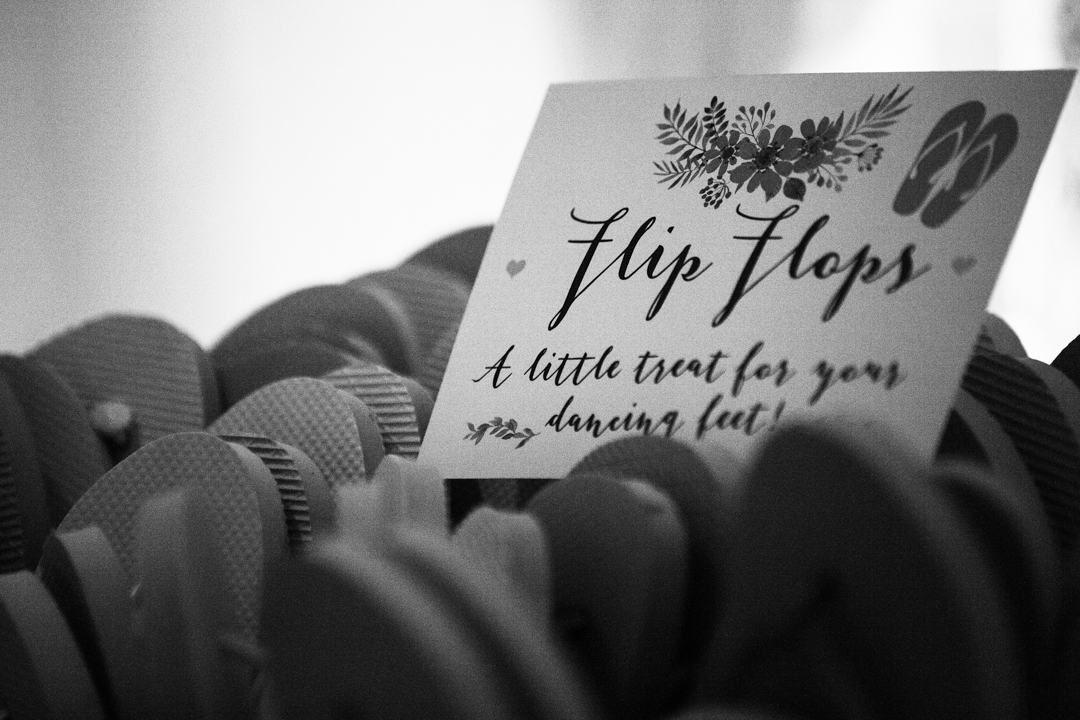 Flip Flops
A little treat for your
dancing feet!